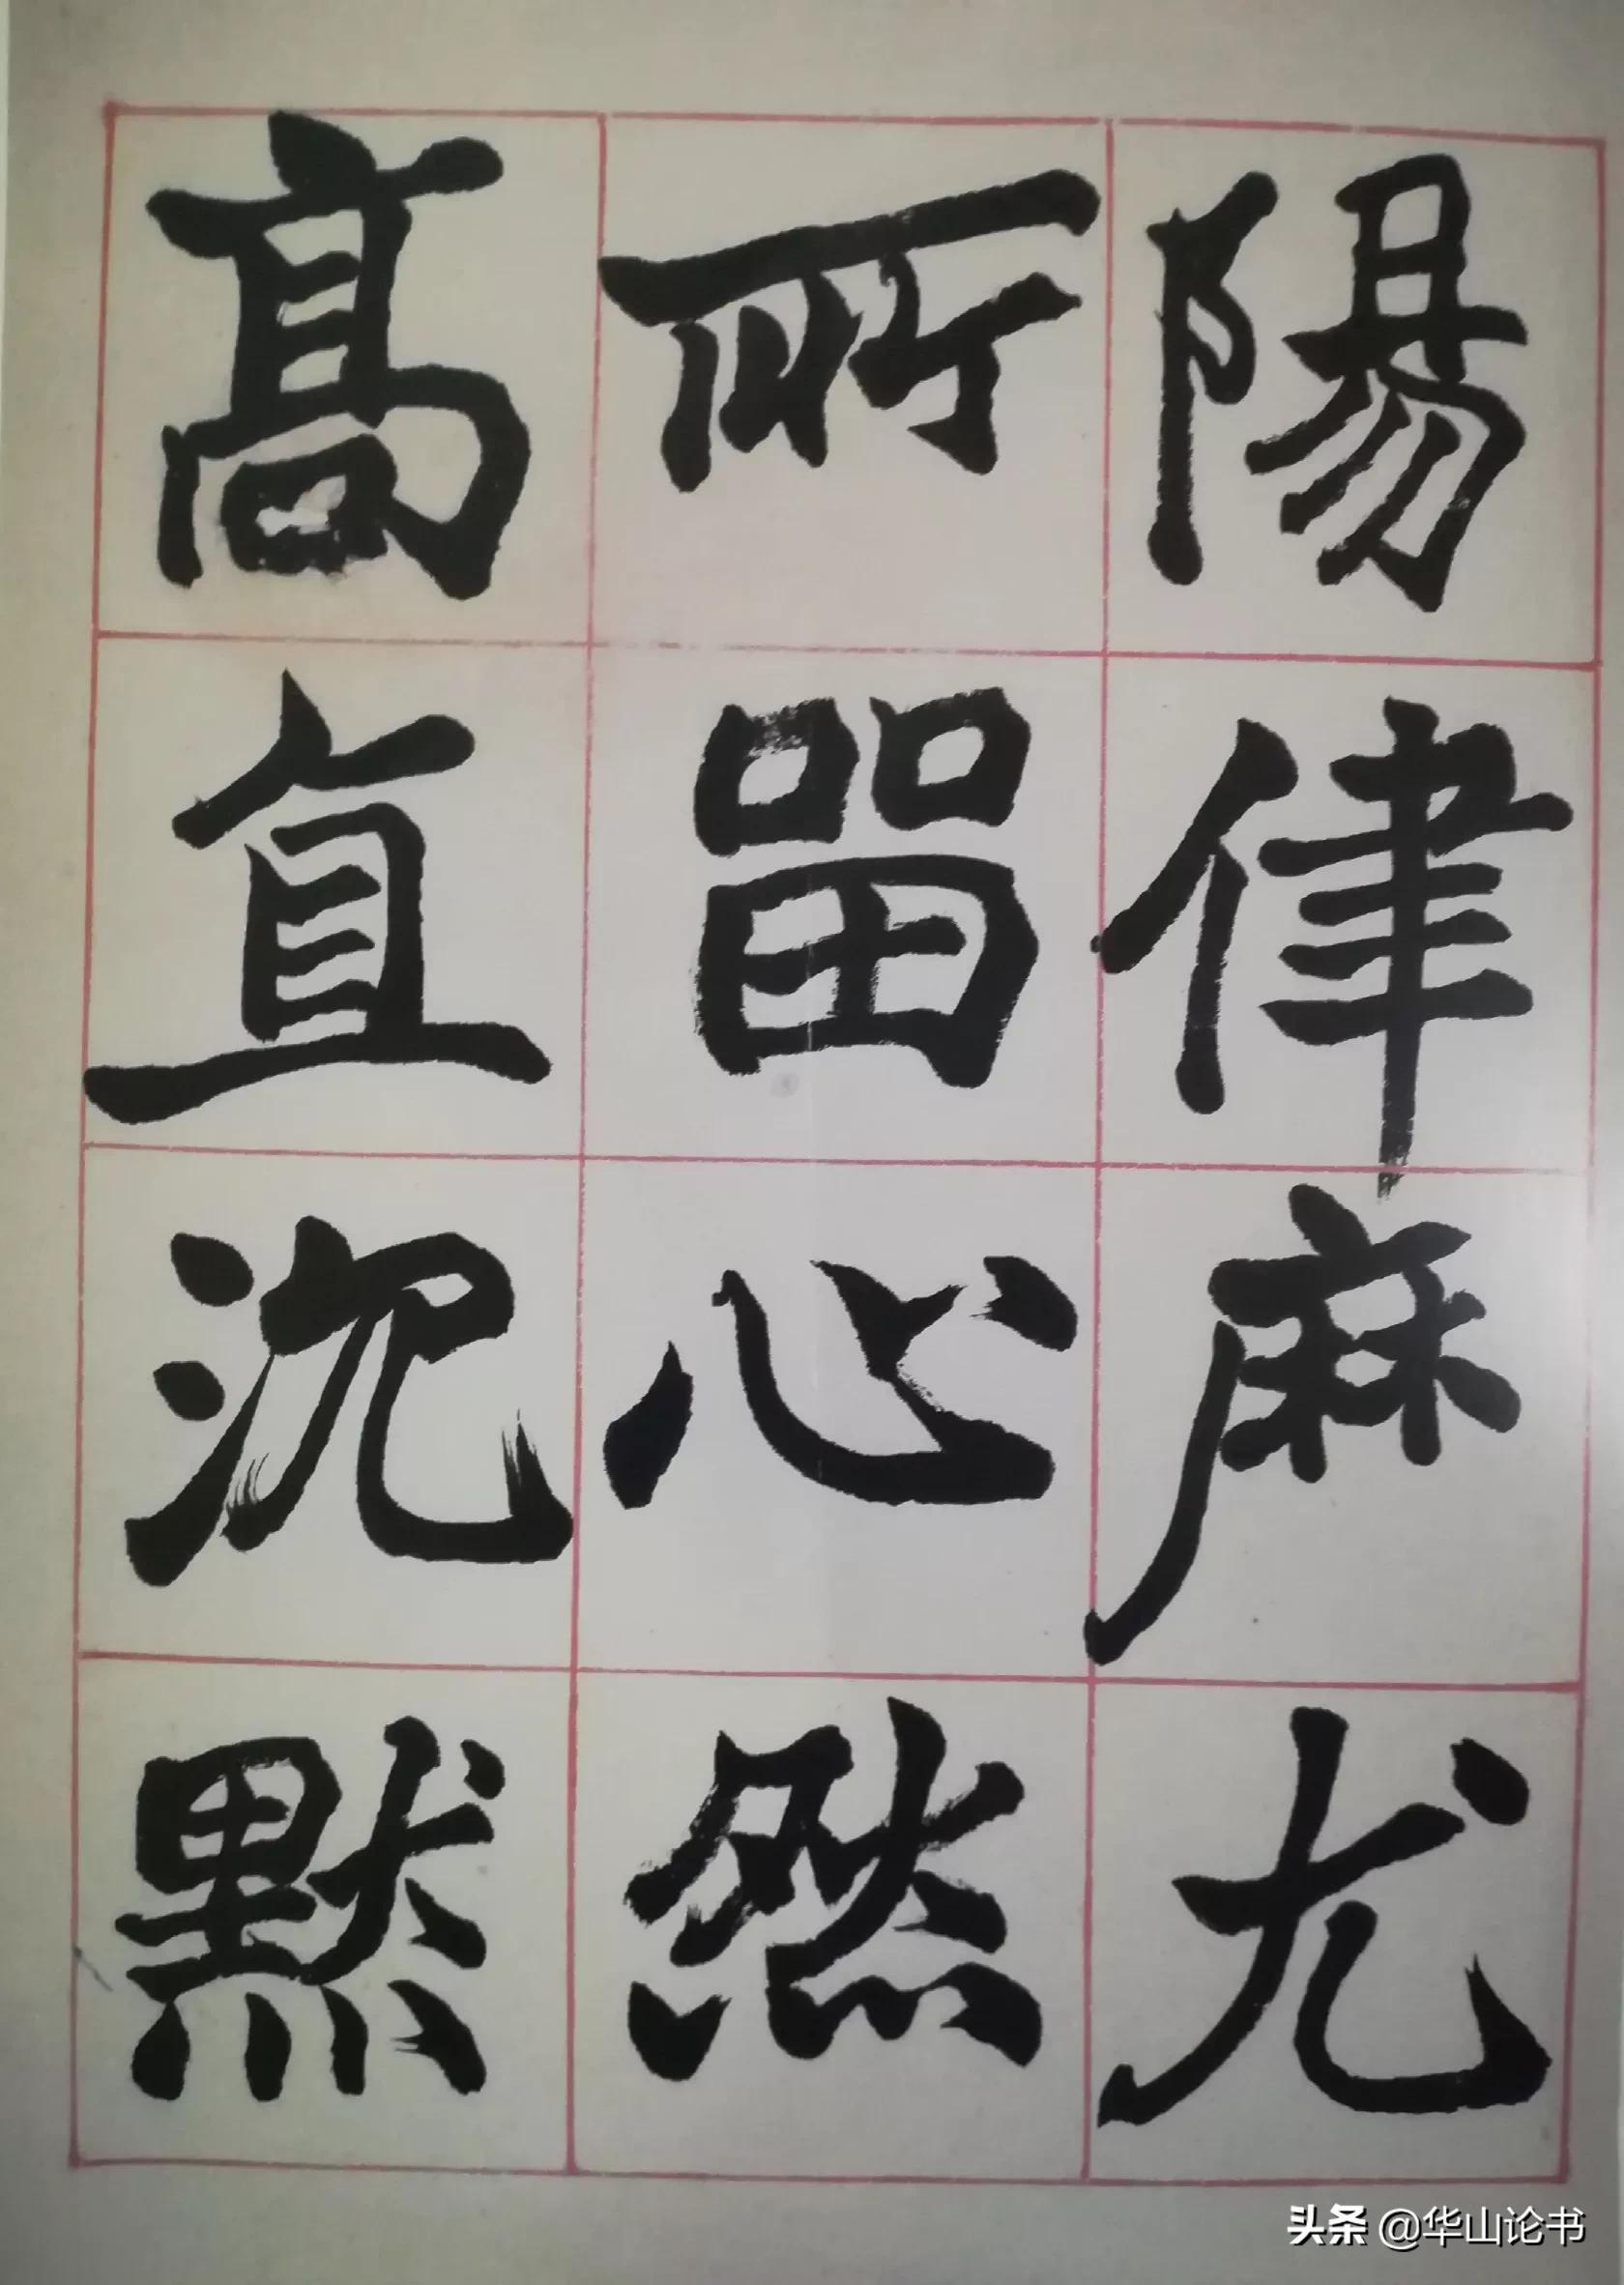 陽律麻尤
所留心然
高直沉默
头条 @华山论书